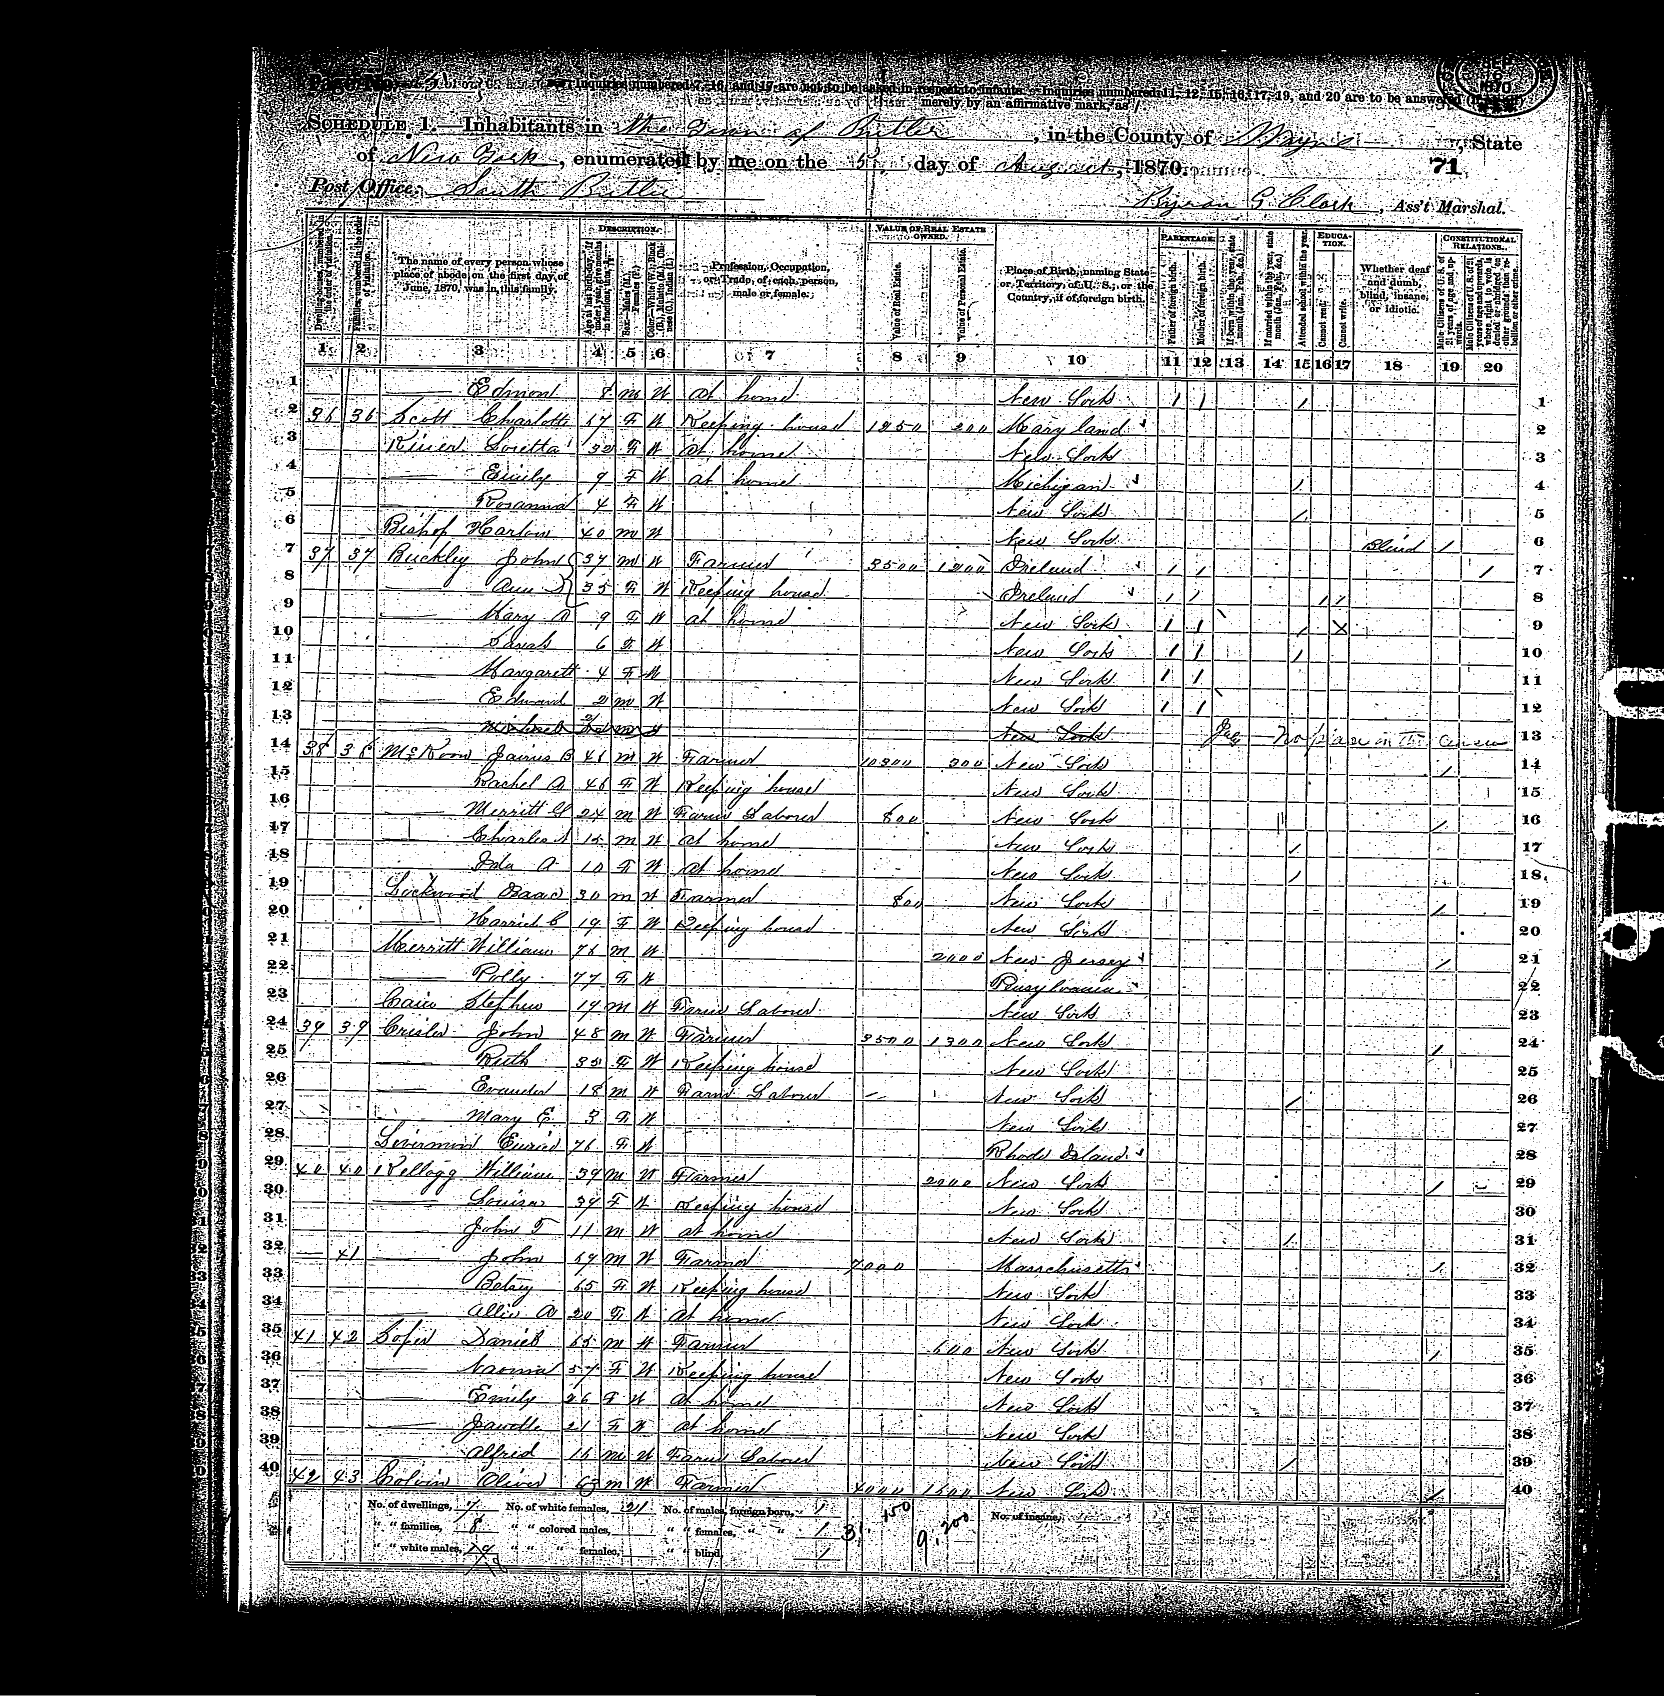 Inquiries numbered 7, 16, and 17 are not to be asked in respect to infants. Inquiries numbered 11, 12, 15, 16, 17, 19, and 20 are to be answered
merely by an affirmative mark, as /
SCHEDULE 1.—Inhabitants in the Town of Butler, in the County of Wayne, State
of New York, enumerated by me on the 5 day of August, 1870. 71
Post Office: South Butler
Byron G. Clark, Ass't Marshal.
DESCRIPTION. VALUE OF REAL ESTATE OWNED. PARENTAGE. EDUCATION. CONSTITUTIONAL RELATIONS.
The name of every person whose place of abode on the first day of June, 1870, was in this family.
Profession, Occupation, or Trade, of each person, male or female.
Value of Real Estate. Value of Personal Estate.
Place of Birth, naming State or Territory, of U. S.; or the Country, if of foreign birth.
Father of foreign birth. Mother of foreign birth.
Attended school within the year. Cannot read. Cannot write.
Whether deaf and dumb, blind, insane, or idiotic.
1 2 3 4 5 6 7 8 9 10 11 12 13 14 15 16 17 18 19 20
1 — Edmon 8 m W at home New York / / / 1
2 36 36 Scott Charlotte 67 F W Keeping house 1250 200 Maryland 2
3 Loretta 32 F W at home New York 3
4 — Emily 9 F W at home Michigan / 4
5 — Rosanna 4 F W New York / 5
6 Bishop Harlow 40 m W New York Blind / 6
7 37 37 Buckley John 37 m W Farmer 3500 1200 Ireland / / / 7
8 — Ann 35 F W Keeping house Ireland / / / / 8
9 — Mary A 9 F W at home New York / / / X 9
10 — Sarah 6 F W New York / / / 10
11 — Margarett 4 F W New York / / 11
12 — Edward 2 m W New York / / 12
13 — Michael m W New York No place in the census 13
14 38 38 McKoon James B 48 m W Farmer 10300 300 New York / 14
15 — Rachel A 46 F W Keeping house New York 15
16 — Merritt 24 m W Farm Laborer 800 New York / 16
17 — Charles 15 m W at home New York / 17
18 — Ida A 10 F W at home New York / 18
19 Lockwood Isaac 30 m W Farmer 800 New York / 19
20 — Harriet C 19 F W Keeping house New York 20
21 Merritt William 76 m W 2000 New Jersey / 21
22 — Polly 77 F W Pensylvania 22
23 Stephen 19 m W Farm Laborer New York 23
24 39 39 Crisler John 48 m W Farmer 3500 1300 New York / 24
25 — Ruth 35 F W Keeping house New York 25
26 — Evander 18 m W Farm Laborer — New York / 26
27 — Mary E 3 F W New York 27
28 76 F W Rhode Island 28
29 40 40 Kellogg William 39 m W Farmer 2000 New York / 29
30 — Louisa 39 F W Keeping house New York 30
31 — John F 11 m W at home New York / 31
32 — 41 — John 69 m W Farmer 7000 Massachusetts / 32
33 — Betsey 65 F W Keeping house New York 33
34 — Allie A 20 F W at home New York 34
35 41 42 Soper Daniel 65 m W Farmer 600 New York / 35
36 — Naomi 57 F W Keeping house New York 36
37 — Emily 26 F W at home New York 37
38 — 21 F W at home New York 38
39 — Alfred 16 m W Farm Laborer New York / 39
40 42 43 Colvin Oliver 63 m W Farmer 4000 1600 New York / 40
No. of dwellings, 7 No. of white females, 21 No. of males, foreign born, 1 No. of insane,
" " families, 8 " " colored males, " " females, " " 1
" " white males, " " " females, " " blind, 1